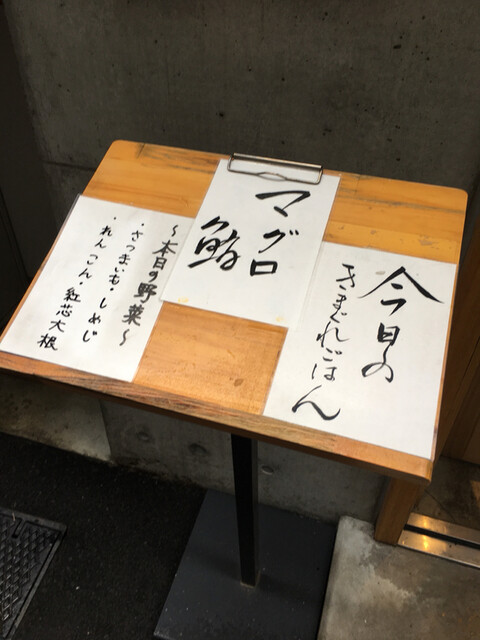 今日の
きまぐれごはん
マグロ
鮪
～本日の野菜～
・さつまいも・しめじ
・れんこん・紅芯大根